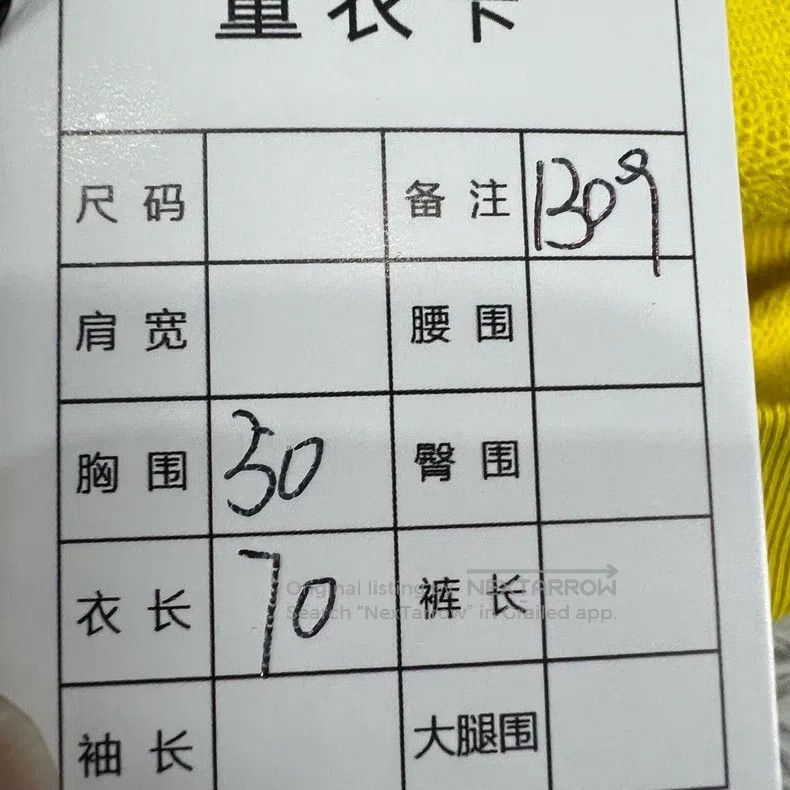 量衣卡
尺码 备注 1309
肩宽 腰围
胸围 50
臀围
衣长 70
裤长
Original listing by NEXTARROW
Search "NexTarrow" in Grailed app.
袖长 大腿围